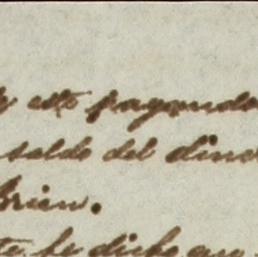 este pagando
saldo del dine
Brien.
te he dicho que